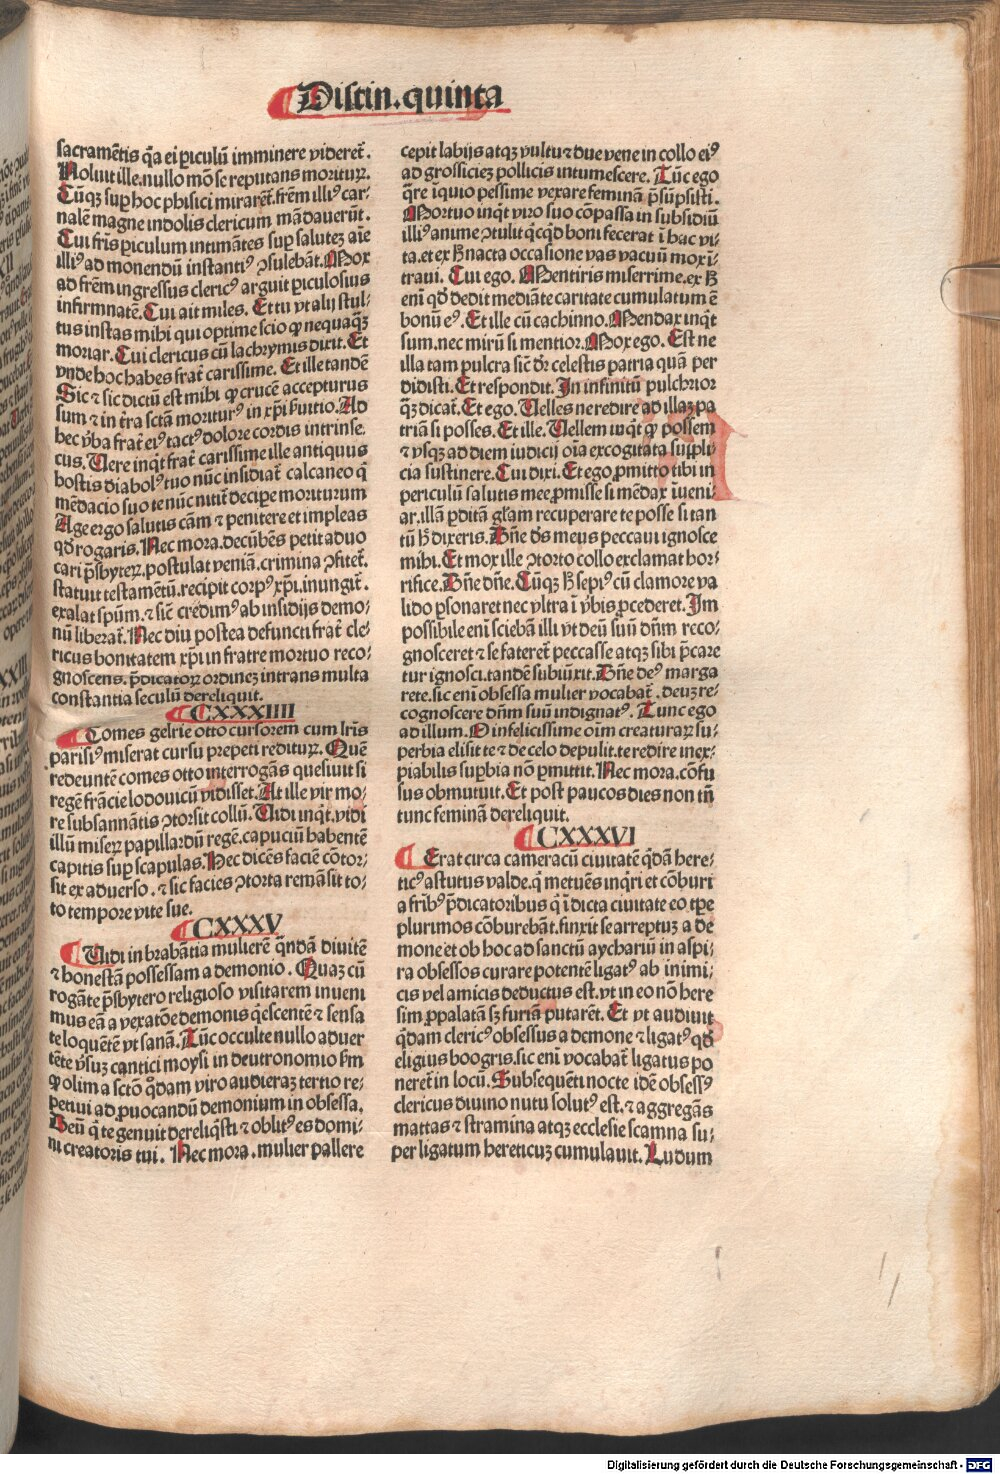 Distin. quinta
sacramētis q̄a ei ꝑiculū imminere videret̄.
Noluit ille. nullo mō se reputans moriturꝝ.
Cūqꝫ suꝑ hoc phisici mirarēt̄. frēm illiꝰ car-
nalē magne indolis clericum mādauerūt.
Cui fr̄is ꝑiculum intimātes suꝑ salutez aīe
illiꝰ ad monendū instantiꝰ ꝯsulebāt. Mox
ad frēm ingressus clericꝰ arguit ꝑiculosius
infirmantē. Cui ait miles. Et tu vt alij stul-
tus instas mihi qui optime scio ꝙ nequaqꝫ
moriar. Cui clericus cū lachrymis dixit. Et
vnde hoc habes frat̄ carissime. Et ille tandē
Sic ⁊ sic dictū est mihi ꝙ crucē accepturus
sum ⁊ in t̄ra sctā moriturꝰ in xp̄i ẜuitio. Ad
hec v̄ba frat̄ eiꝰ tactꝰ dolore cordis intrinse-
cus. Vere inqͥt frat̄ carissime ille antiquus
hostis diabolꝰ tuo nūc insidiat̄ calcaneo q̄
mēdacio suo te nūc nitit̄ deciꝑe moriturum
Age ergo salutis cām ⁊ penitere et impleas
qḋ rogaris. Nec mora. decūbēs petit aduo
cari p̄sbyterꝝ. postulat veniā. crimina ꝯfitet̄.
statuit testamētū. recipit corpꝰ xp̄i. inungit̄.
exalat spūm. ⁊ sic credimꝰ ab insidijs demo-
nū liberat̄. Nec diu postea defuncti frat̄ cle-
ricus bonitatem xp̄i in fratre mortuo reco-
gnoscens. p̄dicatorꝝ ordinez intrans multa
constantia seculū dereliquit.
CXXXIIII
Comes gelrie otto cursorem cum lr̄is
parisiꝰ miserat cursu prepeti rediturꝝ. Quē
redeuntē comes otto interrogās quesiuit si
regē frācie lodouicū vidisset. At ille vir mo-
re subsannātis ꝯtorsit collū. Vidi inqͥt. vidi
illū miserꝝ papillardū regē. capuciū habentē
capitis suꝑ scapulas. Hec dicēs faciē cōtor-
sit ex aduerso. ⁊ sic facies ꝯtorta remāsit to-
to tempore vite sue.
CXXXV
Vidi in brabātia mulierē qͣndā diuitē
⁊ honestā possessam a demonio. Quaz cū
rogāte p̄sbytero religioso visitarem inueni
mus eā a vexatōe demonis qͥescentē ⁊ sensa
te loquētē vt sanā. Tūc occulte nullo aduer
tēte v̄suz cantici moysi in deutronomio ẜm
ꝙ olim a sctō qͦdam viro audieraz terno re-
petiui ad ꝓuocandū demonium in obsessa.
Deū qͥ te genuit dereliqͥsti ⁊ oblitꝰ es domi-
ni creatoris tui. Nec mora. mulier pallere
cepit labijs atqꝫ vultu ⁊ due vene in collo eiꝰ
ad grossiciez pollicis intumescere. Tūc ego
qͣre īquio pessime vexare feminā p̄sūpsisti.
Mortuo inqͥt viro suo cōpassa in subsidiū
illiꝰ anime ꝯtulit qͥcqͥd boni fecerat ī hac vi-
ta. et ex ħ nacta occasione vas vacuū mox ī-
traui. Cui ego. Mentiris miserrime. ex ħ
enī qḋ dedit mediāte caritate cumulatum ē
bonū eꝰ. Et ille cū cachinno. Mendax inqͥt
sum. nec mirū si mentior. Mox ego. Est ne
illa tam pulcra sic̄ dr̄ celestis patria quā per
didisti. Et respondit. In infinitū pulchrior
qͣꝫ dicat̄. Et ego. Velles ne redire ad illaꝫ pa
triā si posses. Et ille. Vellem inqͥt ꝙ possem
⁊ vsqꝫ ad diem iudicij oīa excogitata suppli-
cia sustinere. Cui dixi. Et ego ꝓmitto tibi in
periculū salutis mee ꝓmisse si mēdax īueni-
ar. illā ꝑditā gl̄am recuperare te posse si tan
tū ħ dixeris. Dn̄e d̄s meus peccaui ignosce
mihi. Et mox ille ꝯtorto collo exclamat hor-
rifice. Dn̄e dn̄e. Cūqꝫ ħ sepiꝰ cū clamore va
lido ꝑsonaret nec vltra ī v̄bis ꝓcederet. Im
possibile enī sciebā illi vt deū suū dn̄m reco-
gnosceret ⁊ se fateret̄ peccasse atqꝫ sibi p̄care
tur ignosci. tandē subiūxit. Dn̄e deꝰ marga
rete. sic enī obsessa mulier vocabat̄. deuꝫ re-
cognoscere dn̄m suū indignatꝰ. Tunc ego
ad illum. O infelicissime oīm creaturaꝝ su-
perbia elisit te ⁊ de celo depulit. te redire inex-
piabilis suꝑbia nō ꝑmittit. Nec mora. cōfu
sus obmutuit. Et post paucos dies non tn̄
tunc feminā dereliquit.
CXXXVI
Erat circa cameracū ciuitatē qͥdā here-
ticꝰ astutus valde. qͥ metuēs inqͥri et cōburi
a frībꝰ p̄dicatoribus qͥ ī dicta ciuitate eo tꝑe
plurimos cōburebāt. finxit se arreptuꝫ a de
mone et ob hoc ad sanctū aychariū in aspi-
ra obsessos curare potentē ligatꝰ ab inimi-
cis vel amicis deductus est. vt in eo nō here
sim ꝓpalatā sꝫ furiā putarēt. Et vt audiuit
qͥdam clericꝰ obsessus a demone ⁊ ligatꝰ qḋ
eligius boogris. sic enī vocabat̄ ligatus po
neret̄ in locū. Subsequēti nocte idē obsessꝰ
clericus diuino nutu solutꝰ est. ⁊ aggregās
mattas ⁊ stramina atqꝫ ecclesie scamna su-
per ligatum hereticuꝫ cumulauit. Ludum
Digitalisierung gefördert durch die Deutsche Forschungsgemeinschaft - DFG